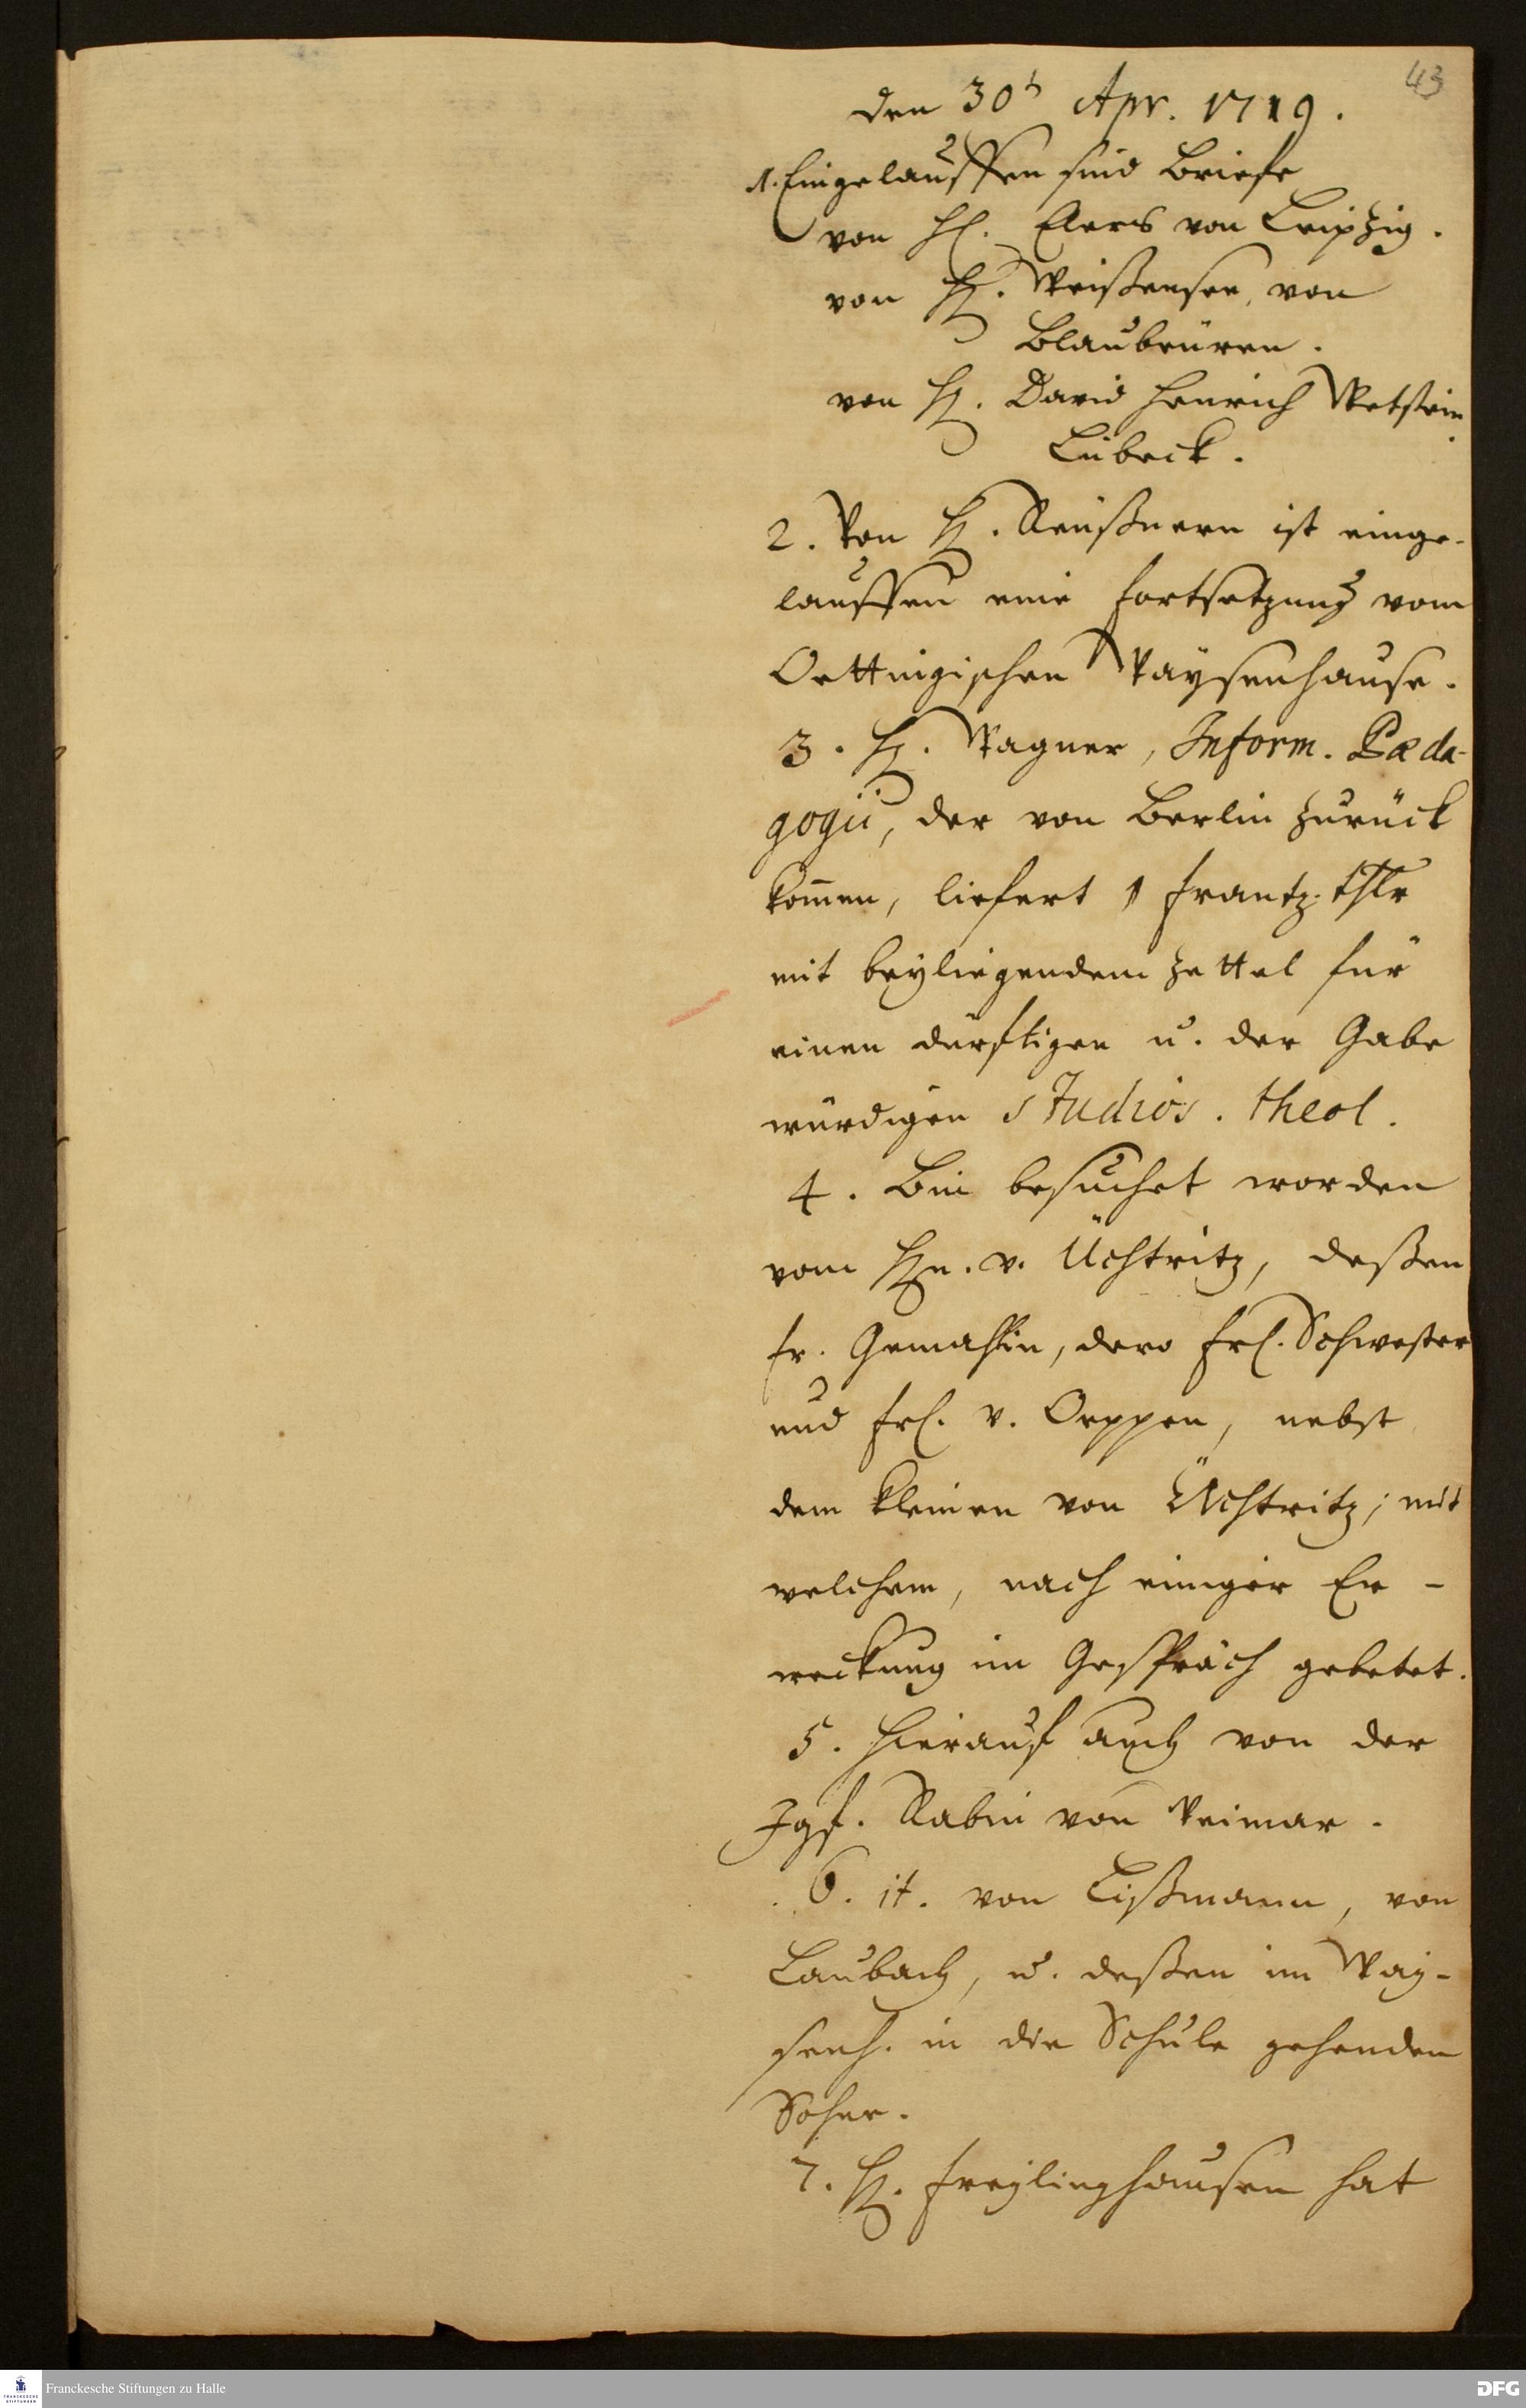 43
den 30t Apr. 1719.
1. Eingelauffen sind Briefe
von H. Elers von Leipzig.
von H. Weißensee, von
Blaubeüren.
von H. David Henrich Wetstein
Lübeck.
2. Von H. Reüßnern ist einge-
lauffen eine Fortsetzung vom
Oettingischen Waysenhause.
3. H. Wagner, Inform. Pæda-
gogii, der von Berlin zurück
kom̄en, liefert 1 Frantz. Thlr
mit beyliegendem Zettel für
einen dürftigen u. der Gabe
würdigen studios. theol.
4. Bin besuchet worden
vom Hn. v. Üchtritz, deßen
Fr. Gemahlin, dero Frl. Schwester
und Frl. v. Oeppen, nebst
dem kleinen von Üchtritz; mit
welchem, nach einiger Er-
weckung im Gespräch gebetet.
5. Hierauf auch von der
Jgf. Rabin von Weimar.
6. it. von Lißmann, von
Laubach, u. deßen im Way-
senh. in die Schule gehenden
Sohne.
7. H. Freylinghausen hat
Franckesche Stiftungen zu Halle
FRANCKESCHE STIFTUNGEN
DFG